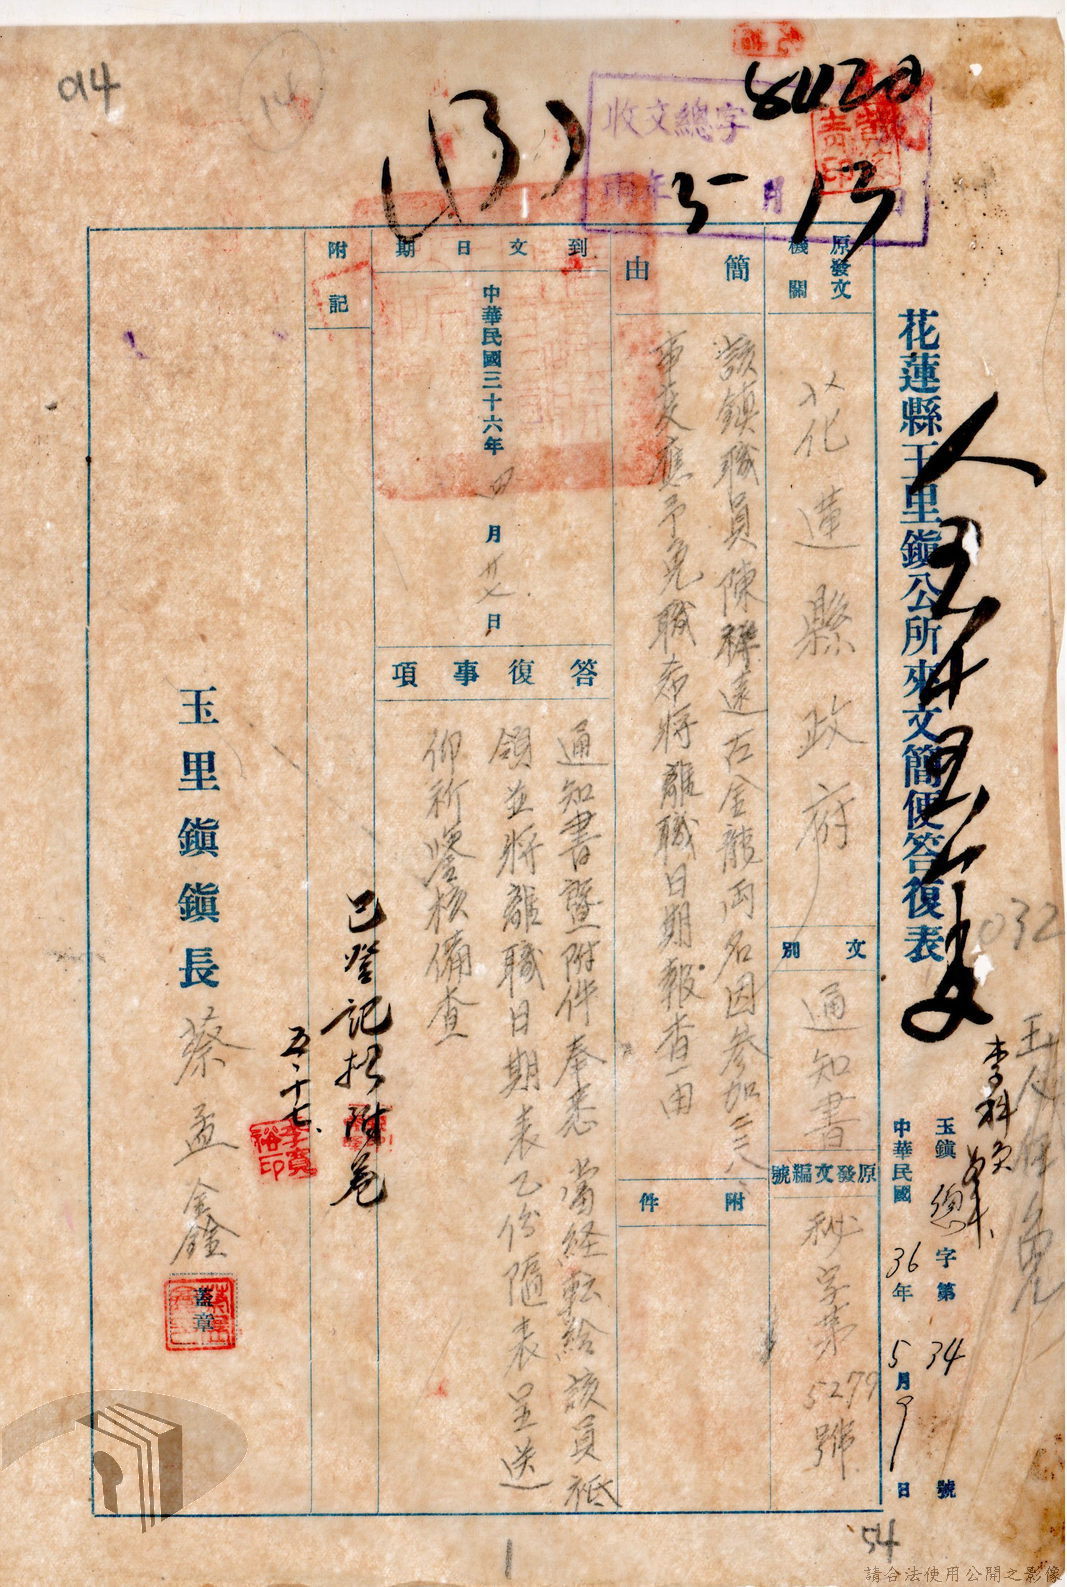 014
14
(13)
收文總字
8420
年5月13日
花蓮縣玉里鎮公所來文簡便答復表
玉鎮總字第34號
中華民國36年5月9日
032
李科員
原發文機關
花蓮縣政府
文別
通知書
原發文編號
秘字第5279號
簡由
該鎮職員陳祥遠古金龍両名因參加二二八
事変應予免職希將離職日期報查由
附件
到文日期
中華民國三十六年四月廿七日
答復事項
通知書暨附件奉悉 當経転給該員祗
領並將離職日期表乙份隨表呈送
仰祈鑒核備查
附記
已登記拟附卷
五、十七、
玉里鎮鎮長蔡孟鑫
蓋章
1
54
請合法使用公開之影像